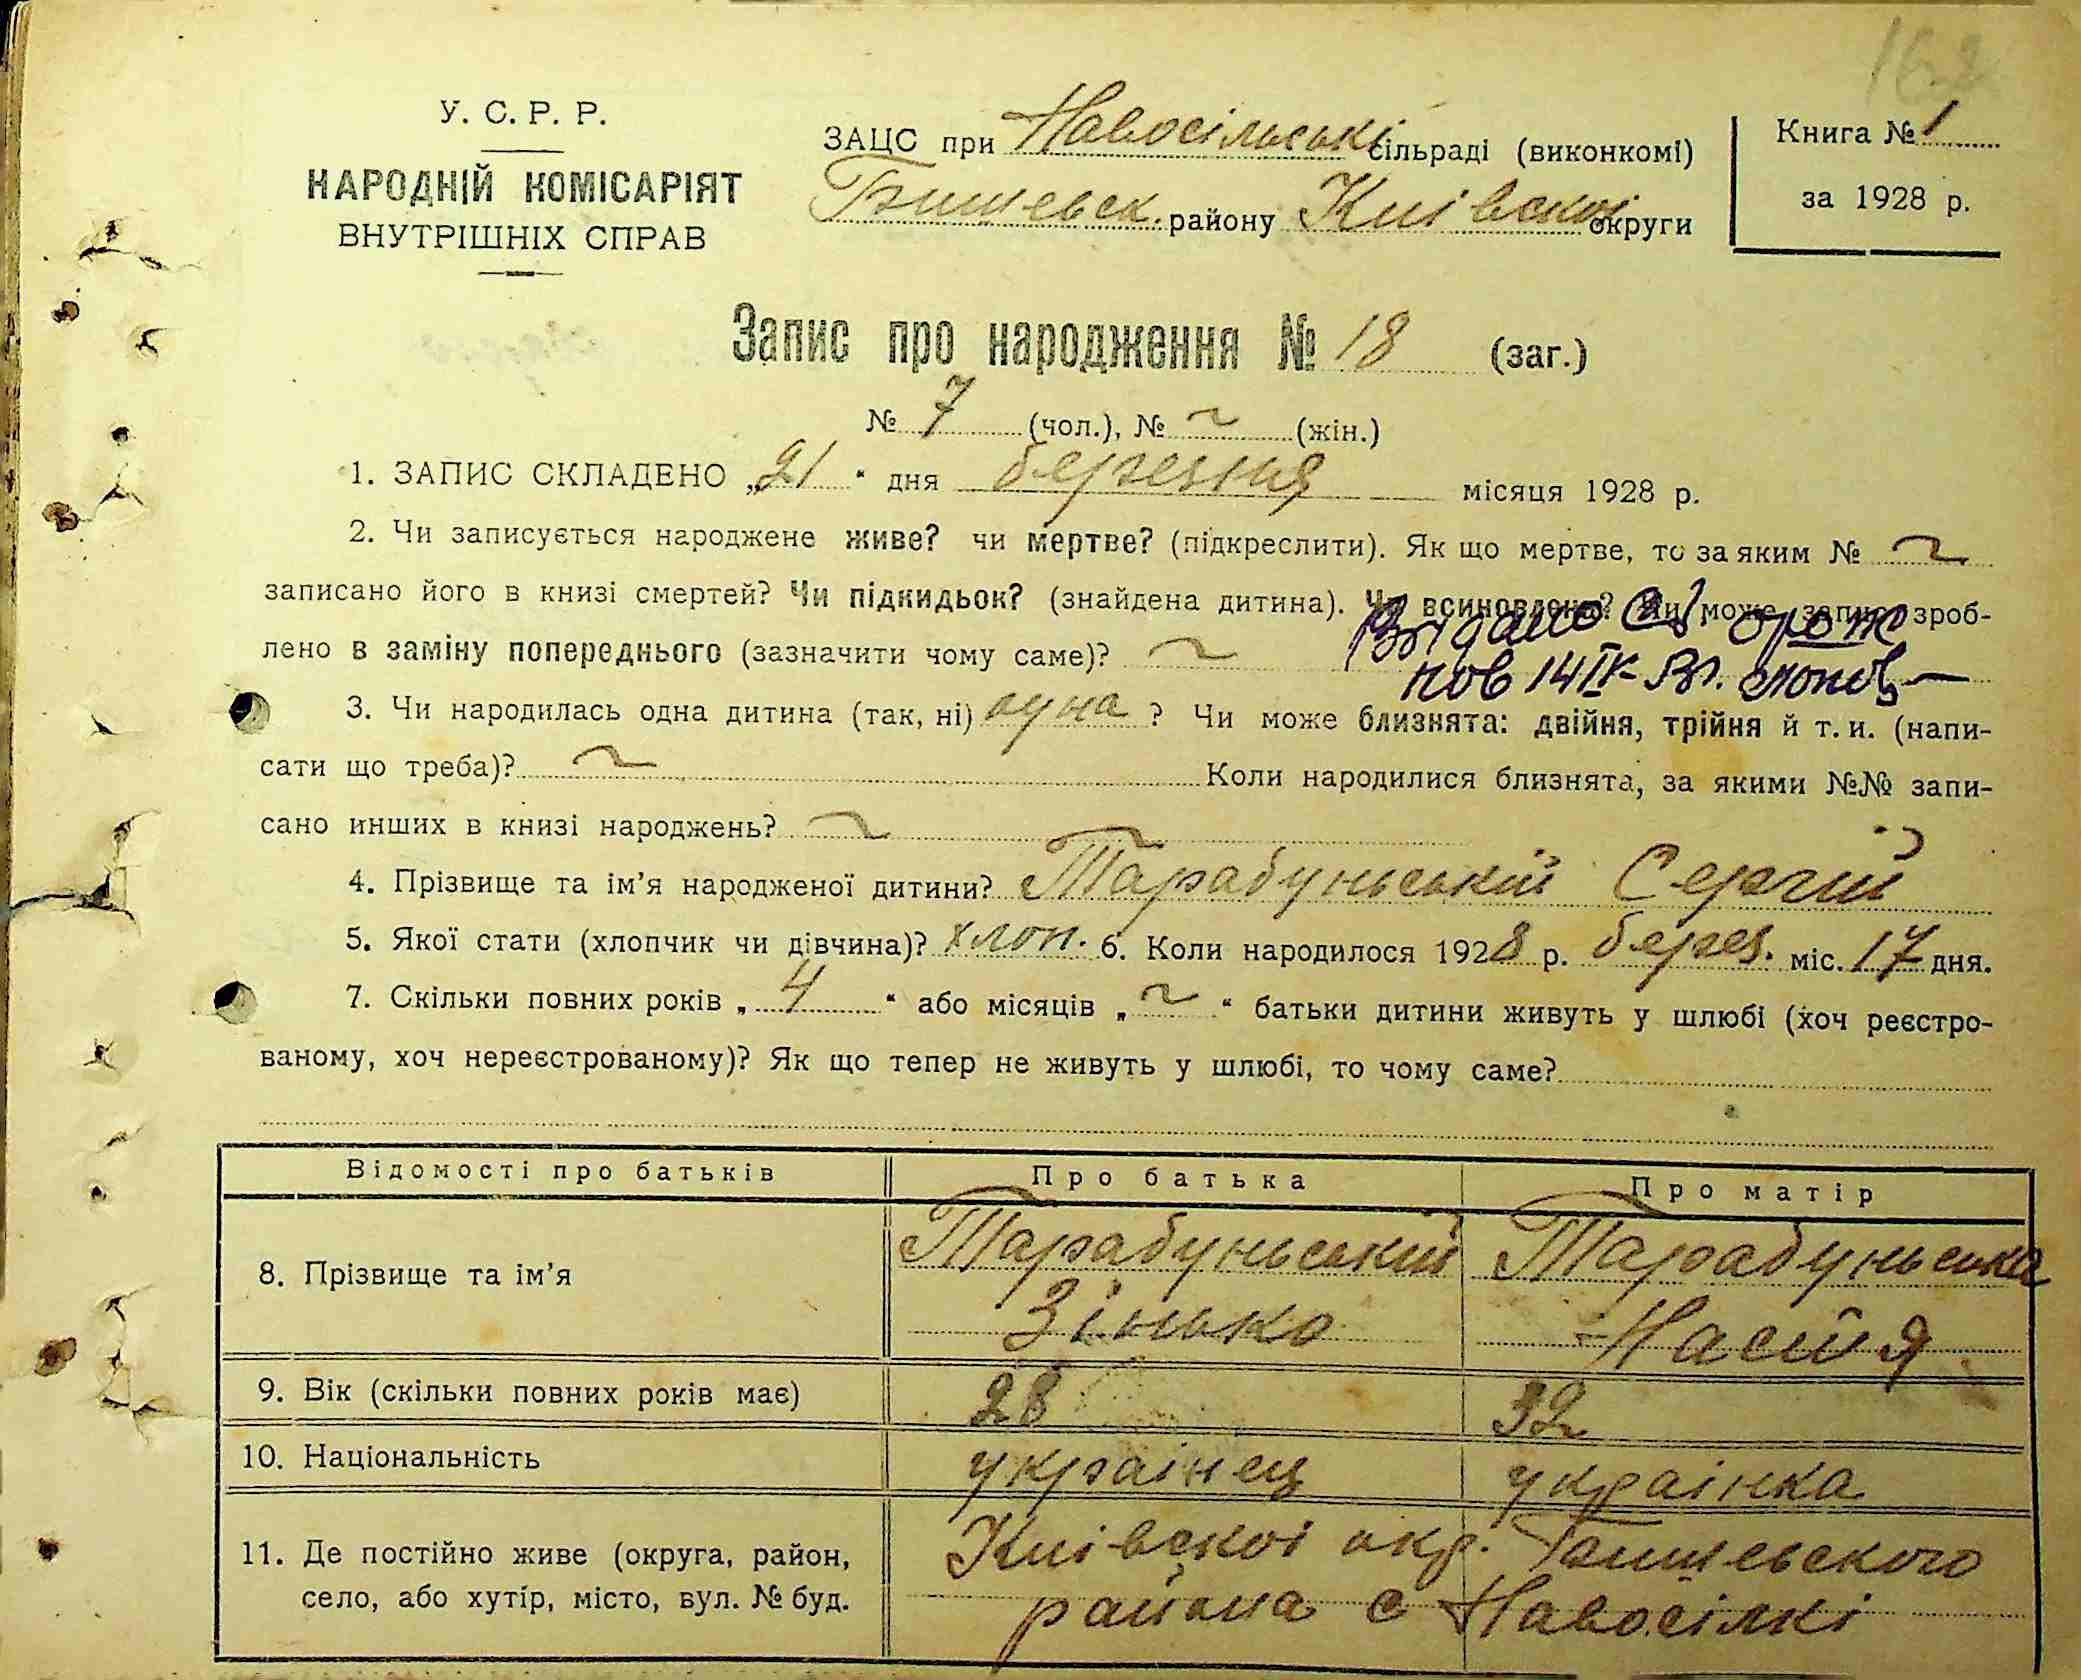 162
У. С. Р. Р.
НАРОДНІЙ КОМІСАРІЯТ
ВНУТРІШНІХ СПРАВ
ЗАЦС при Навосільські сільраді (виконкомі)
Бишевск. району Киівскоі округи
Книга № 1
за 1928 р.
Запис про народження № 18 (заг.)
№ 7 (чол.), № ~ (жін.)
1. ЗАПИС СКЛАДЕНО „21“ дня березня місяця 1928 р.
2. Чи записується народжене живе? чи мертве? (підкреслити). Як що мертве, то за яким № ~
записано його в книзі смертей? Чи підкидьок? (знайдена дитина). Чи всиновлено? Чи може запис зроб-
лено в заміну попереднього (зазначити чому саме)? ~
Видано
нов 14 IV
3. Чи народилась одна дитина (так, ні) одна ? Чи може близнята: двійня, трійня й т. и. (напи-
сати що треба)? ~ Коли народилися близнята, за якими №№ запи-
сано инших в книзі народжень? ~
4. Прізвище та ім’я народженої дитини? Тарабуньській Сергій
5. Якої стати (хлопчик чи дівчина)? хлоп. 6. Коли народилося 1928 р. берез. міс. 17 дня.
7. Скільки повних років „4“ або місяців „~“ батьки дитини живуть у шлюбі (хоч реєстро-
ваному, хоч нереєстрованому)? Як що тепер не живуть у шлюбі, то чому саме?
Відомості про батьків Про батька Про матір
8. Прізвище та ім’я Тарабуньській Тарабуньська
Зінько Настя
9. Вік (скільки повних років має) 28 32
10. Національність украінец украінка
11. Де постійно живе (округа, район, Киівскоі окр. Бишевського
село, або хутір, місто, вул. № буд. района с Навосілкі